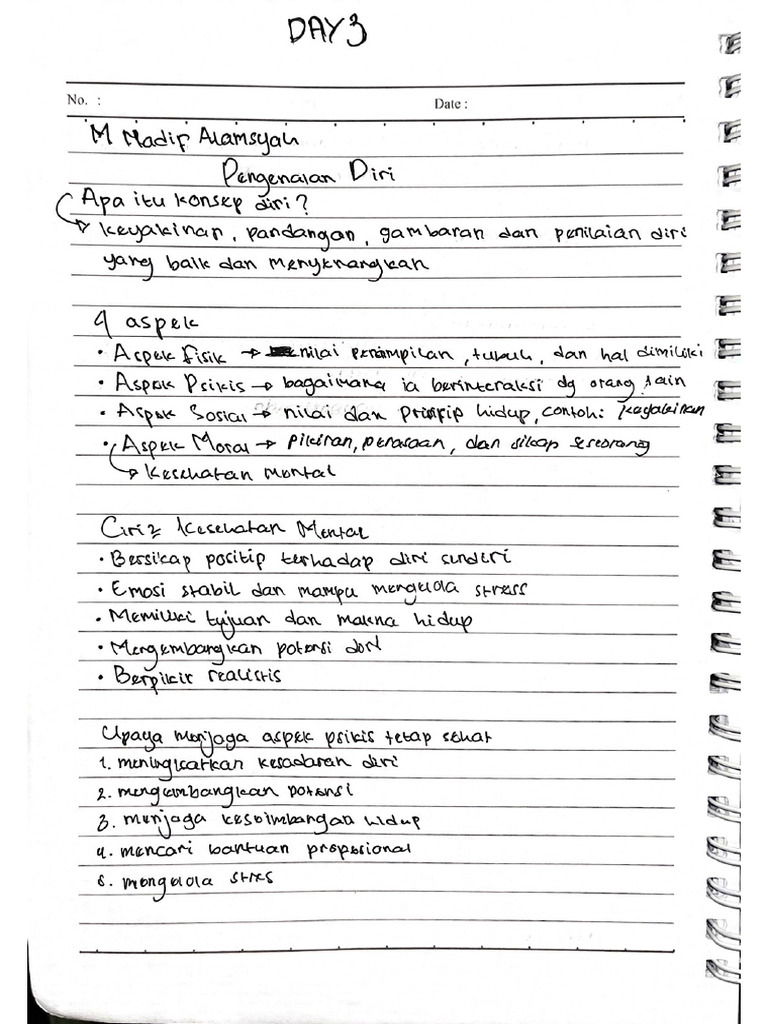 DAY 3
No. :
Date :
M Nadif Alamsyah
Pengenalan Diri
Apa itu konsep diri?
→ keyakinan, pandangan, gambaran dan penilaian diri
yang baik dan menyenangkan
4 aspek
• Aspek Fisik → nilai penampilan, tubuh, dan hal dimiliki
• Aspek Psikis → bagaimana ia berinteraksi dg orang lain
• Aspek Sosial → nilai dan prinsip hidup, contoh: keyakinan
• Aspek Moral → pikiran, perasaan, dan sikap seseorang
→ Kesehatan mental
Ciri2 Kesehatan Mental
• Bersikap positip terhadap diri sendiri
• Emosi stabil dan mampu mengelola stress
• Memiliki tujuan dan makna hidup
• Mengembangkan potensi diri
• Berpikir realistis
Upaya menjaga aspek psikis tetap sehat
1. meningkatkan kesadaran diri
2. mengembangkan potensi
3. menjaga keseimbangan hidup
4. mencari bantuan propesional
5. mengelola stres